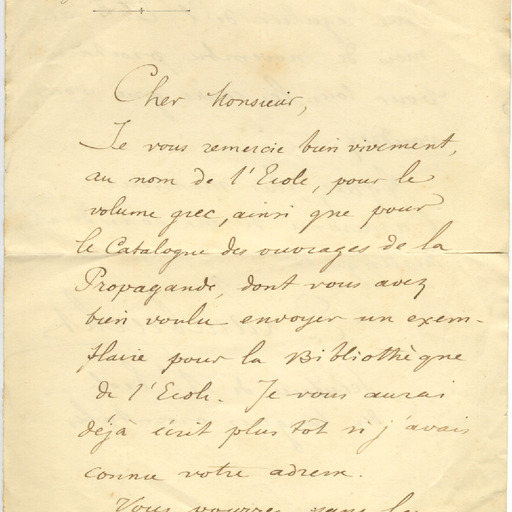 Cher Monsieur,
Je vous remercie bien vivement,
au nom de l'Ecole, pour le
volume grec, ainsi que pour
le Catalogue des ouvrages de la
Propagande, dont vous avez
bien voulu envoyer un exem-
plaire pour la Bibliothèque
de l'Ecole. Je vous aurais
déjà écrit plus tôt si j'avais
connu votre adresse.
Vous